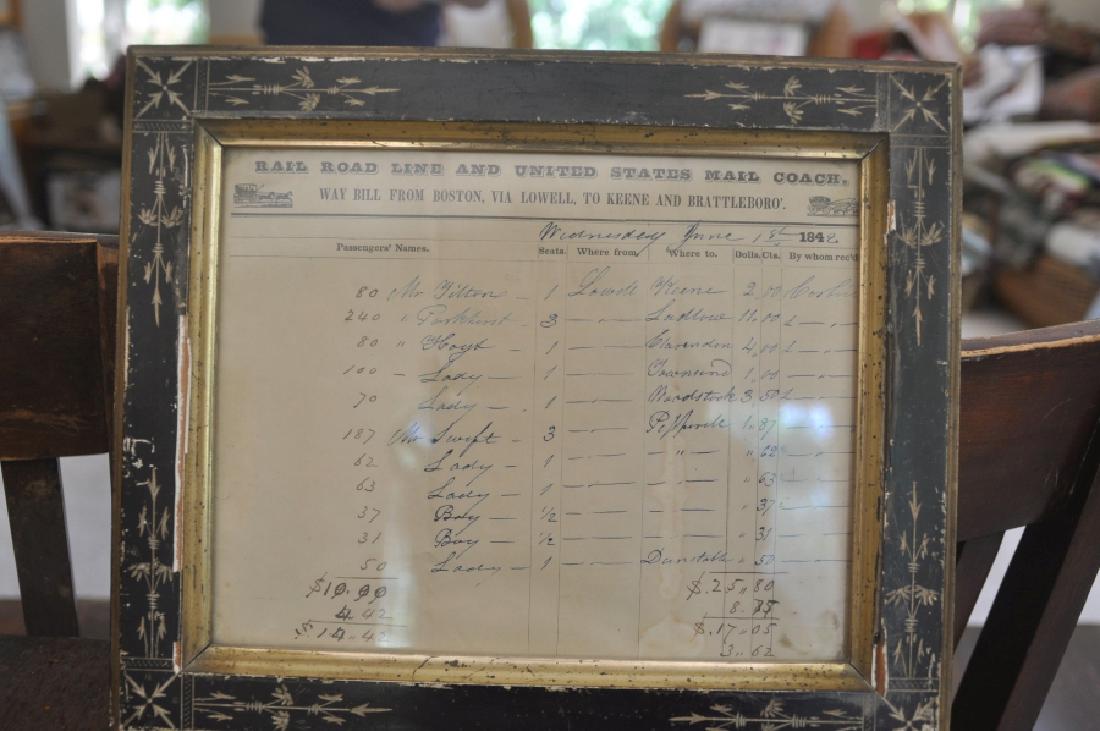 RAIL ROAD LINE AND UNITED STATES MAIL COACH.
WAY BILL FROM BOSTON, VIA LOWELL, TO KEENE AND BRATTLEBORO'.
Wednesday June 1st 1842
Passengers' Names. Seats. Where from, Where to. Dolls. Cts. By whom rec'd
80 Mr Tilton — 1 Lowell Keene 2,00
240 " Parkhurst — 3 — " — Ludlow 11,00 — " —
80 " Hoyt — 1 — " — Clarendon 4,00 — " —
100 — Lady — 1 — " — Townsend 1,00 — " —
70 Lady — 1 — " — Woodstock 3 50 — " —
187 Mr Swift — 3 — " — Pepperell 1,87 — " —
62 Lady — 1 — " — — " — " 62 — " —
63 Lady — 1 — — " 63 — " —
37 Boy — 1/2 — — " 37 — " —
31 Boy — 1/2 — — " 31 — " —
50 Lady — 1 — " — Dunstable " 50 — " —
$10.00 $.25,,80
4.42 8.75
$.14.42 $.17,,05
3,,62